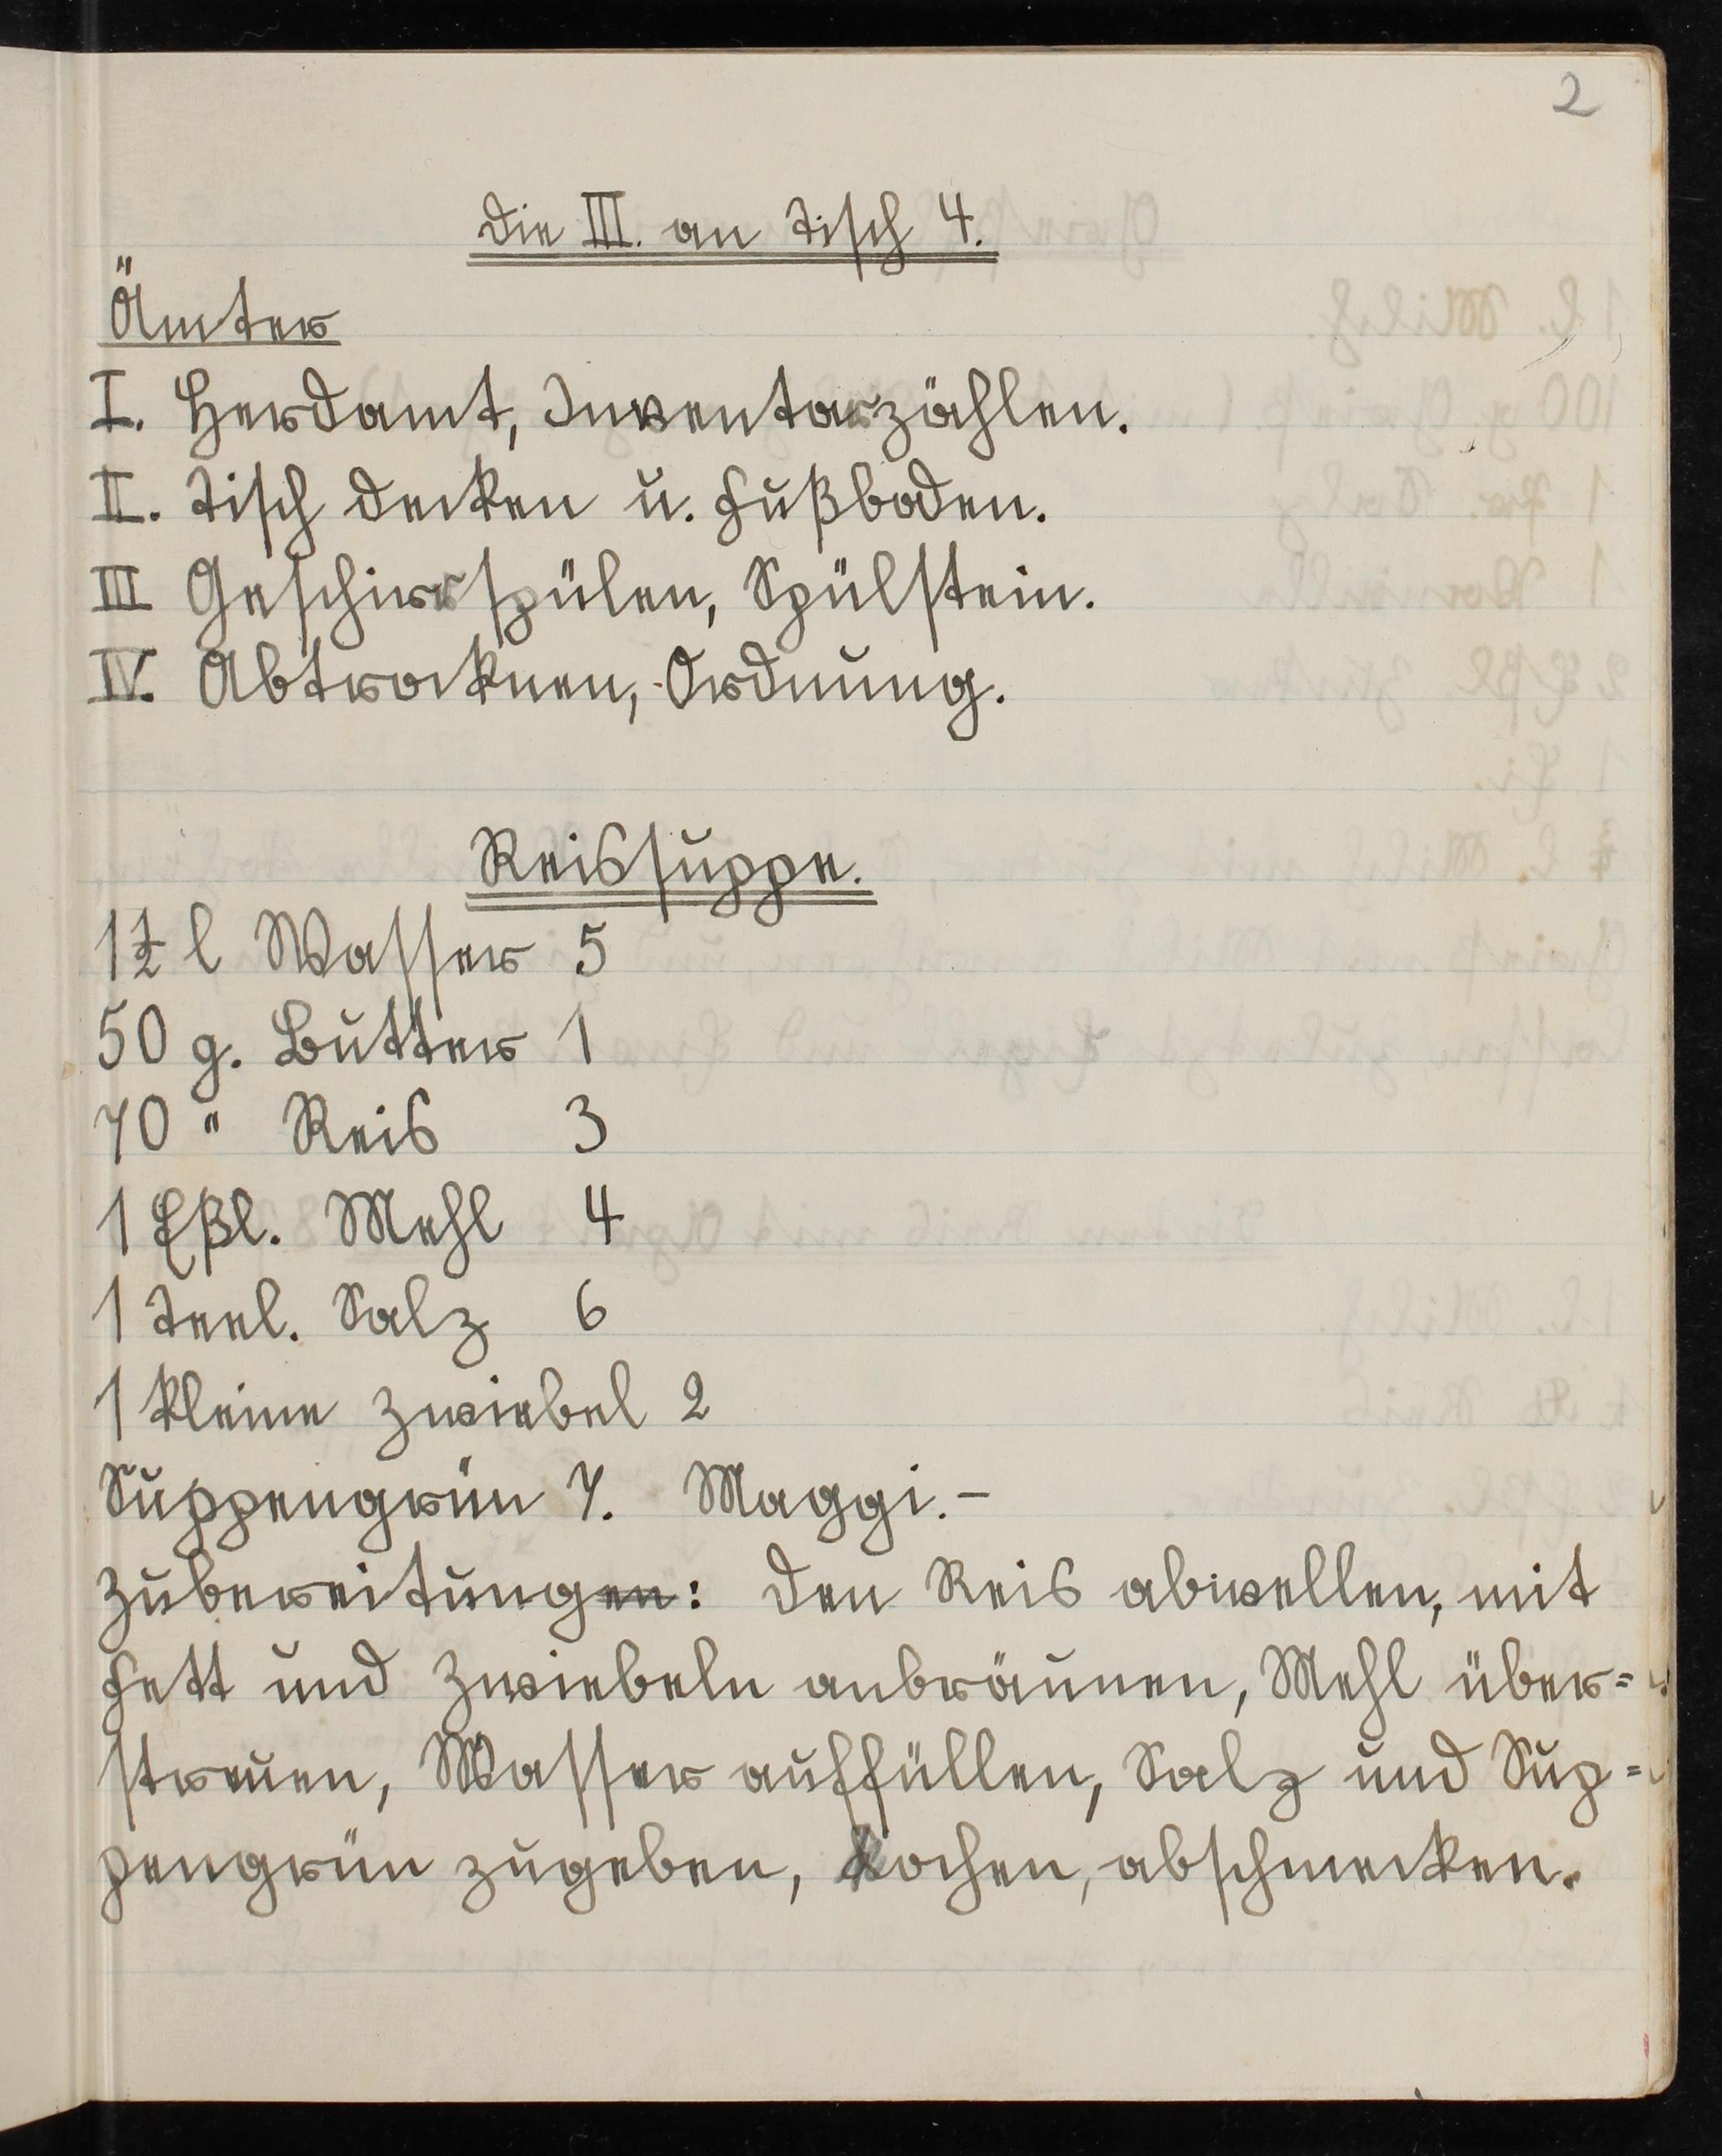 2
Die III. an Tisch 4.
Ämter
I. Herdamt, Inventarzählen.
II. Tisch decken u. Fußboden.
III Geschirrspülen, Spülstein.
IV. Abtrocknen, Ordnung.
Reissuppe.
1½ l Wasser 5
50 g. Butter 1
70 " Reis 3
1 Eßl. Mehl 4
1 Teel. Salz 6
1 kleine Zwiebel 2
Suppengrün 7. Maggi.-
Zubereitungen: Den Reis abwellen, mit
Fett und Zwiebeln anbräunen, Mehl über=
streuen, Wasser auffüllen, Salz und Sup=
pengrün zugeben, kochen, abschmecken.